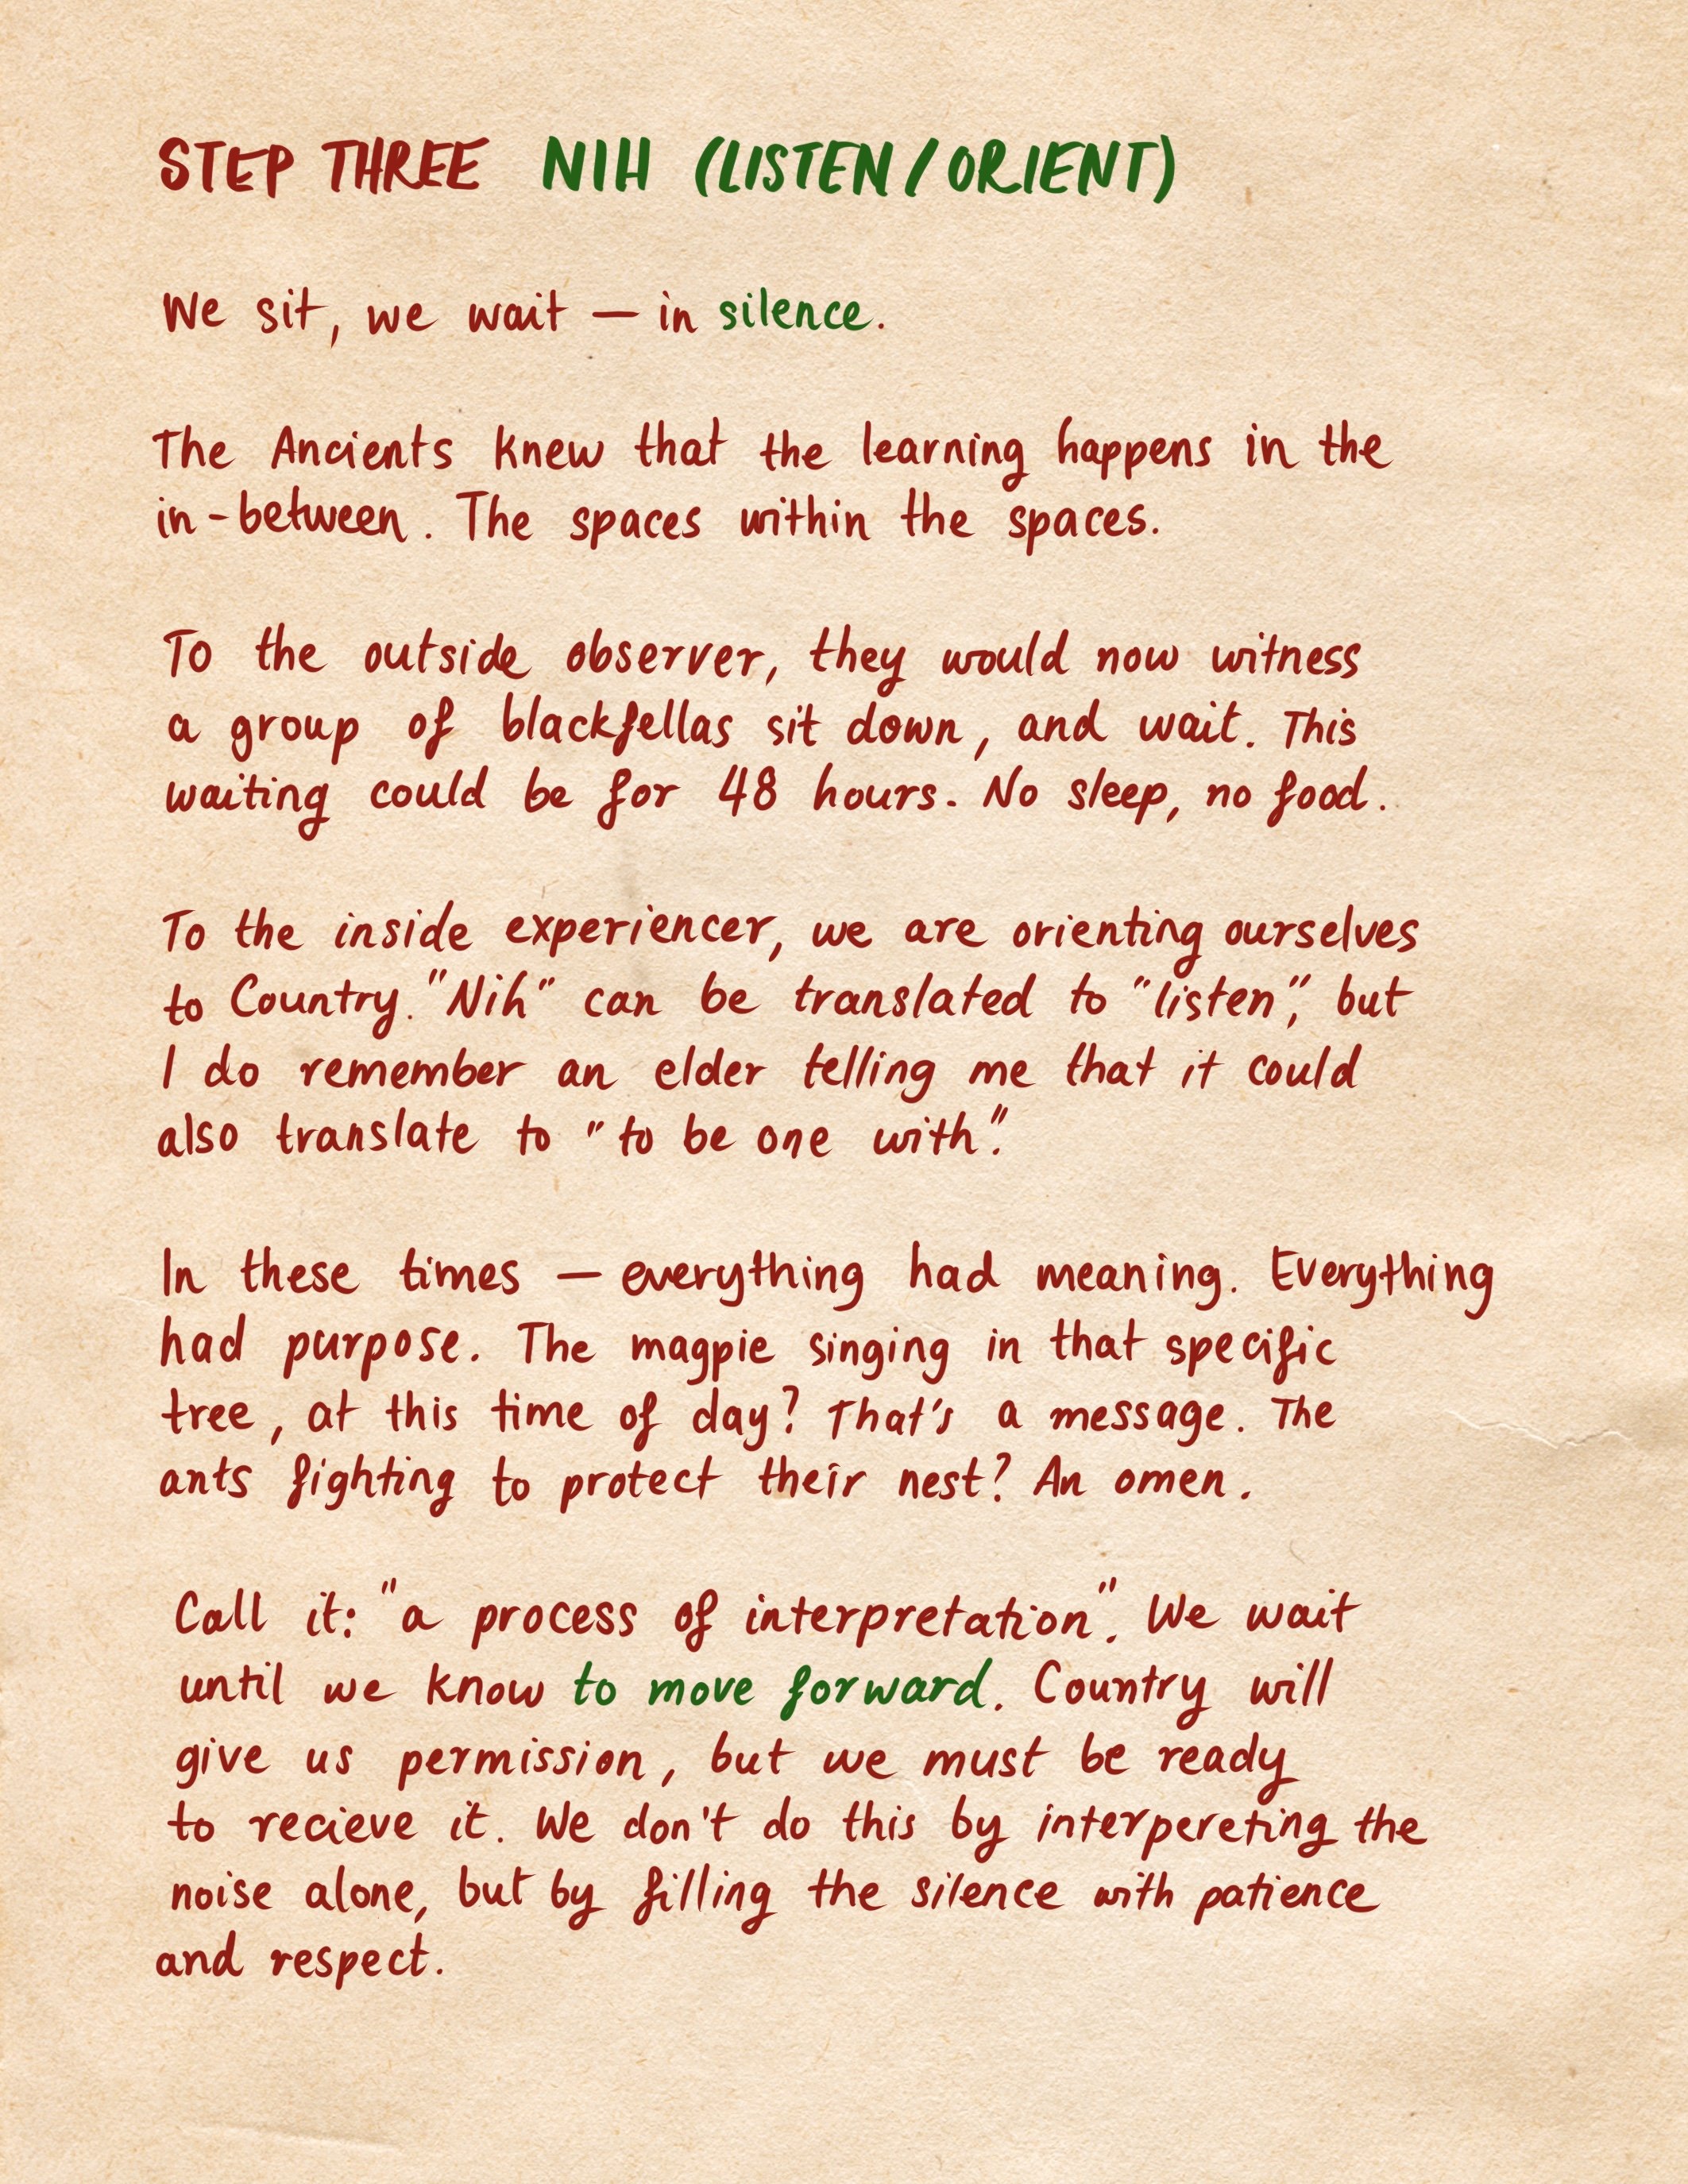 STEP THREE NIH (LISTEN/ORIENT)
We sit, we wait — in silence.
The Ancients knew that the learning happens in the
in-between. The spaces within the spaces.
To the outside observer, they would now witness
a group of blackfellas sit down, and wait. This
waiting could be for 48 hours. No sleep, no food.
To the inside experiencer, we are orienting ourselves
to Country. "Nih" can be translated to "listen", but
I do remember an elder telling me that it could
also translate to "to be one with".
In these times — everything had meaning. Everything
had purpose. The magpie singing in that specific
tree, at this time of day? That's a message. The
ants fighting to protect their nest? An omen.
Call it: "a process of interpretation". We wait
until we know to move forward. Country will
give us permission, but we must be ready
to recieve it. We don't do this by interpereting the
noise alone, but by filling the silence with patience
and respect.